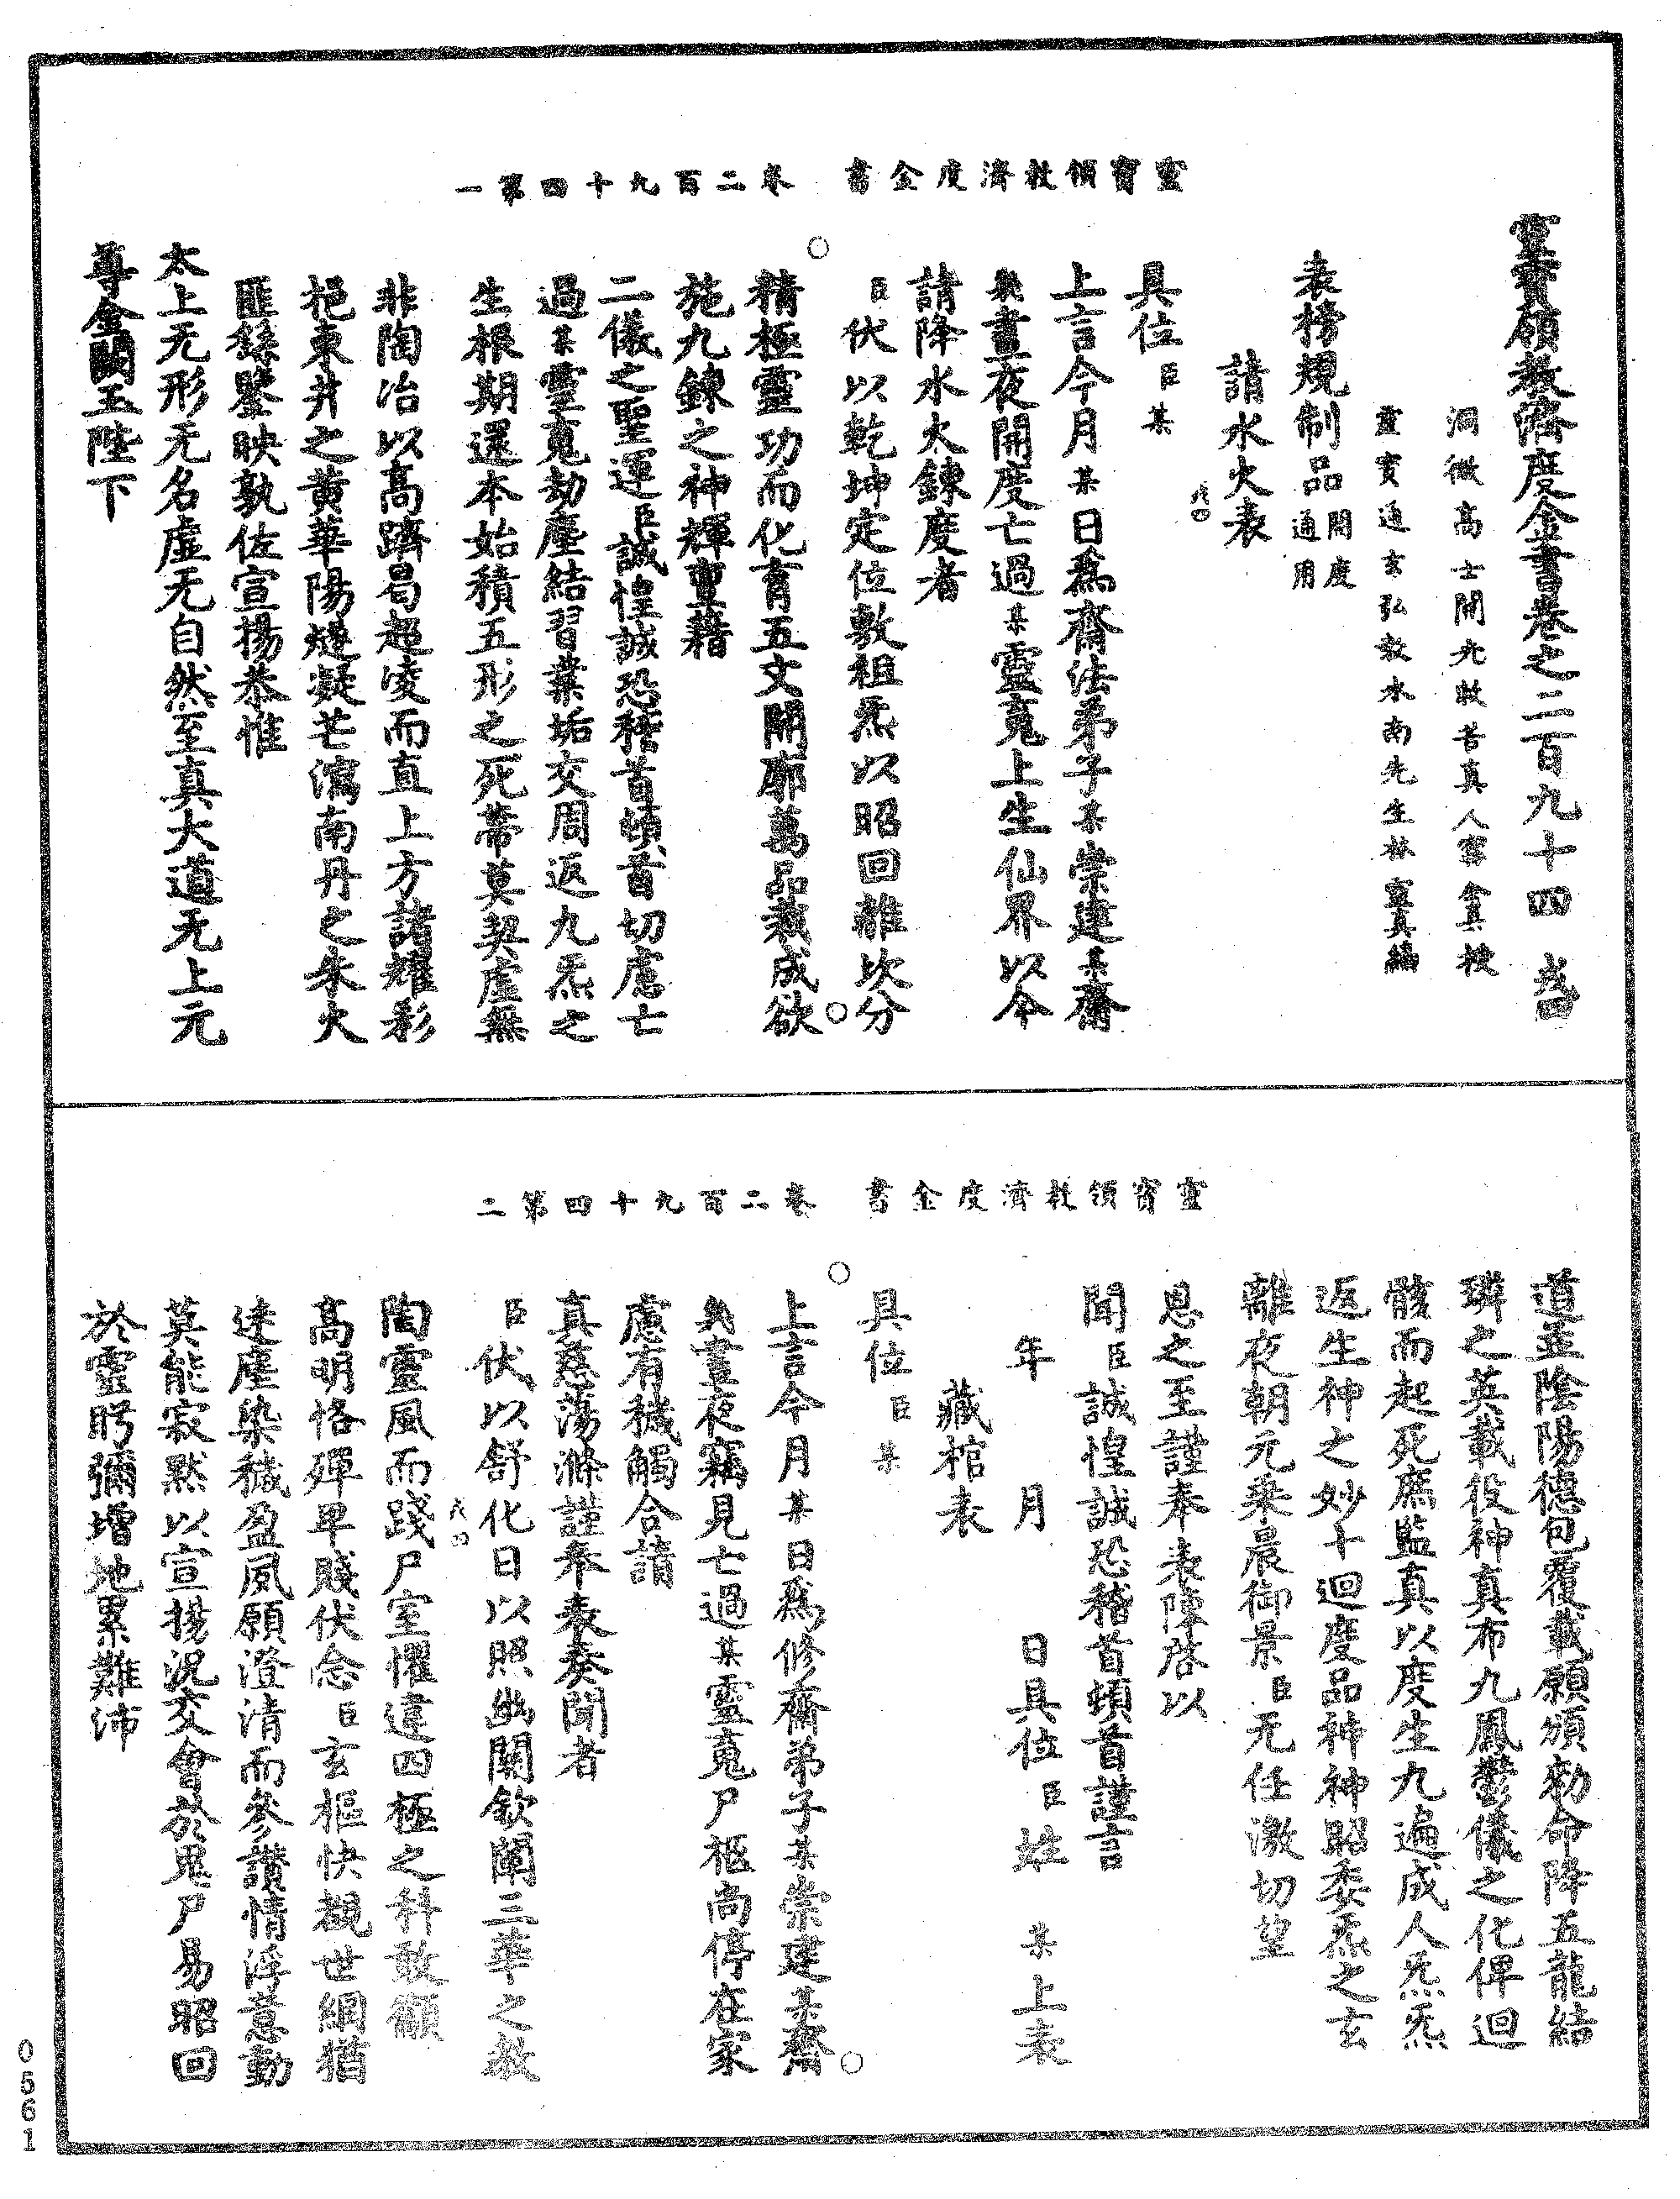 靈寶領教濟度金書　卷二百九十四第一
靈寶領教濟度金書卷之二百九十四
洞微高士開光救苦真人寗全真授
靈寶通玄弘教水南先生林靈真編
表榜規制品開度通用
請水火表
具位臣某
上言今月某日爲齋法弟子某崇建某齋
幾晝夜開度亡過某靈䰟上生仙界以今
請降水火鍊度者
臣伏以乾坤定位敷祖炁以昭回離坎分
精極靈功而化育五文開廓萬品裁成欲
施九鍊之神輝重藉
二儀之聖運臣誠惶誠恐稽首頓首切慮亡
過某靈䰟劫塵結習業垢交周返九炁之
生根期還本始積五形之死蔕莫契虛無
非陶冶以高躋曷超凌而直上方諸耀彩
挹東井之黃華陽燧凝芒瀉南丹之朱火
匪繇鑒映孰佐宣揚恭惟
太上无形无名虛无自然至真大道无上元
尊金闕玉陛下
靈寶領教濟度金書　卷二百九十四第二
道並陰陽德包覆載願頒勑命降五龍結
璘之英載役神真布九鳳鬱儀之化俾迴
骸而起死庶監真以度生九遍成人炁炁
返生神之妙十迴度品神神昭委炁之玄
離夜朝元乘晨御景臣无任激切望
恩之至謹奉表陳啓以
聞臣誠惶誠恐稽首頓首謹言
年　月　日具位臣姓　某上表
藏棺表
具位臣某
上言今月某日爲修齋弟子某崇建某齋
幾晝夜竊見亡過某靈䰟尸柩尚停在家
慮有穢觸合請
真慈蕩滌謹奉表奏聞者
臣伏以舒化日以照幽關欽闡三華之教
陶靈風而踐尸室懼違四極之科敢顓
高明恪殫卑賤伏念臣玄樞快覩世網猶
迷塵染穢盈夙願澄清而參讚情浮意動
莫能寂默以宣揚況交會於鬼尸易昭回
於靈眄彌增地累難沛
0561